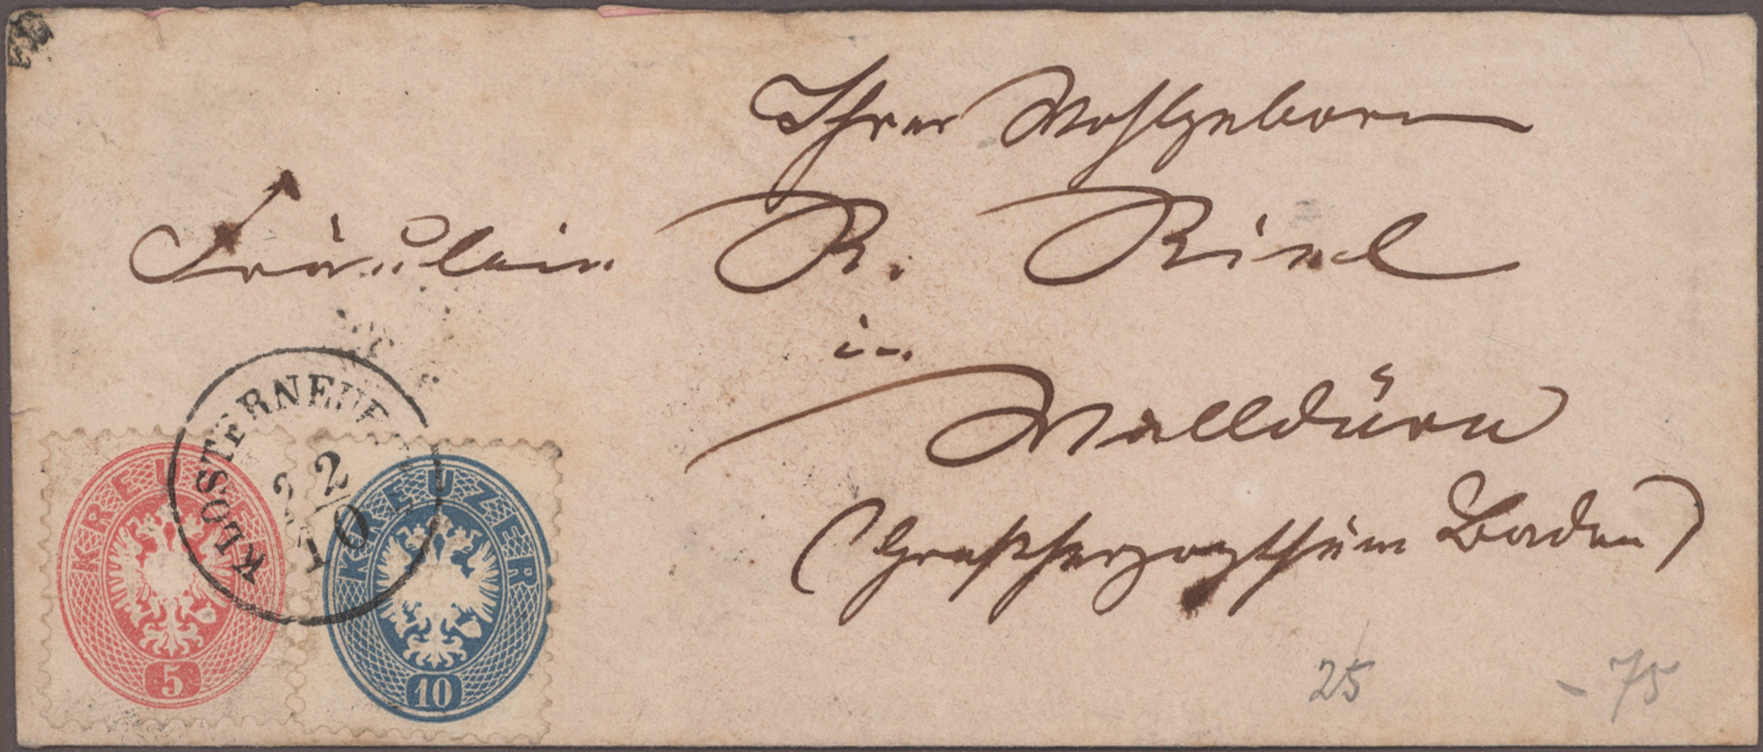 Ihrer Wohlgeborn
Fräulein R. Rinel
in
Walldürn
(Großherzogthum Baden)
KLOSTERNEU
22
10
KREUZER
5
KREUZER
10
25
- 75